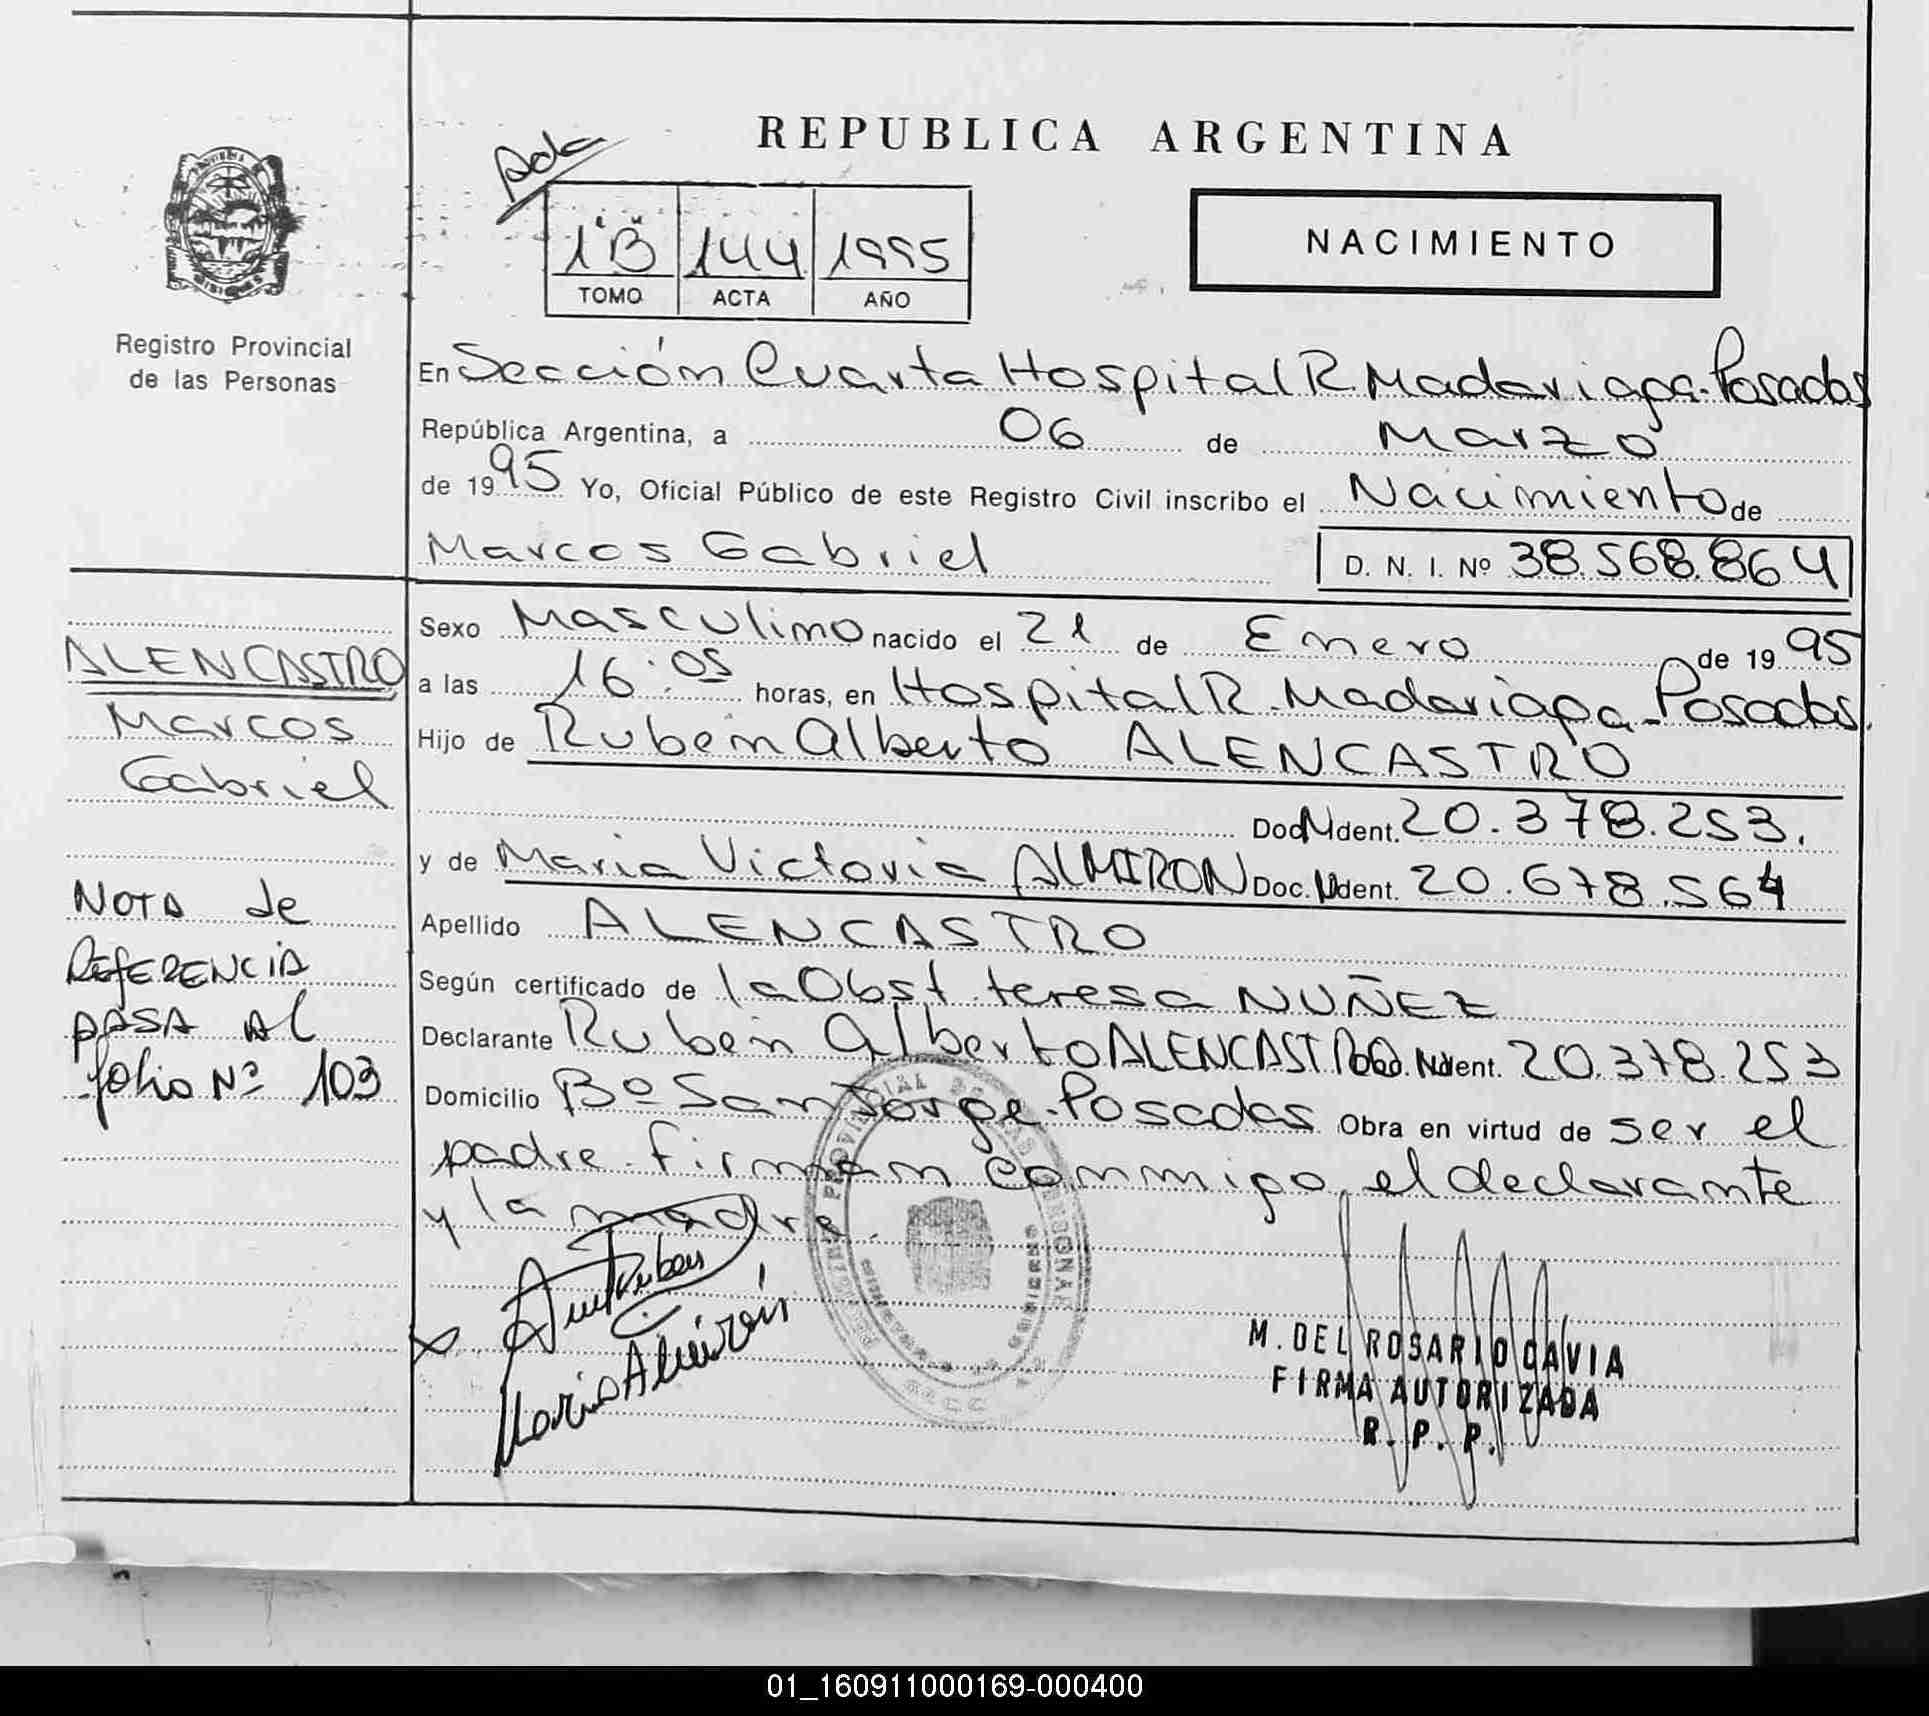 REPUBLICA ARGENTINA
NACIMIENTO
1º "B" 144 1995
TOMO ACTA AÑO
Registro Provincial
de las Personas
En Sección Cuarta Hospital R. Madariaga - Posadas
República Argentina, a 06 de Marzo
de 1995 Yo, Oficial Público de este Registro Civil inscribo el Nacimiento de
Marcos Gabriel D. N. I. Nº 38.568.864
Sexo Masculino nacido el 21 de Enero de 1995
a las 16:05 horas, en Hospital R. Madariaga - Posadas.
Hijo de Rubén Alberto ALENCASTRO
Doc. N Ident. 20.378.253.
y de Maria Victoria ALMIRON Doc. N Ident. 20.678.564
Apellido ALENCASTRO
Según certificado de la Obst. teresa NUÑEZ
Declarante Rubén Alberto ALENCASTRO Doc. N Ident. 20.378.253
Domicilio Bº San Jorge - Posadas Obra en virtud de ser el
padre. Firman conmigo el declarante
y la madre.
ALENCASTRO
Marcos
Gabriel
NOTA de
REFERENCIA
PASA AL
folio Nº 103
Ruben
Maria Almirón
M. DEL ROSARIO CAVIA
FIRMA AUTORIZADA
R. P. P.
01_160911000169-000400